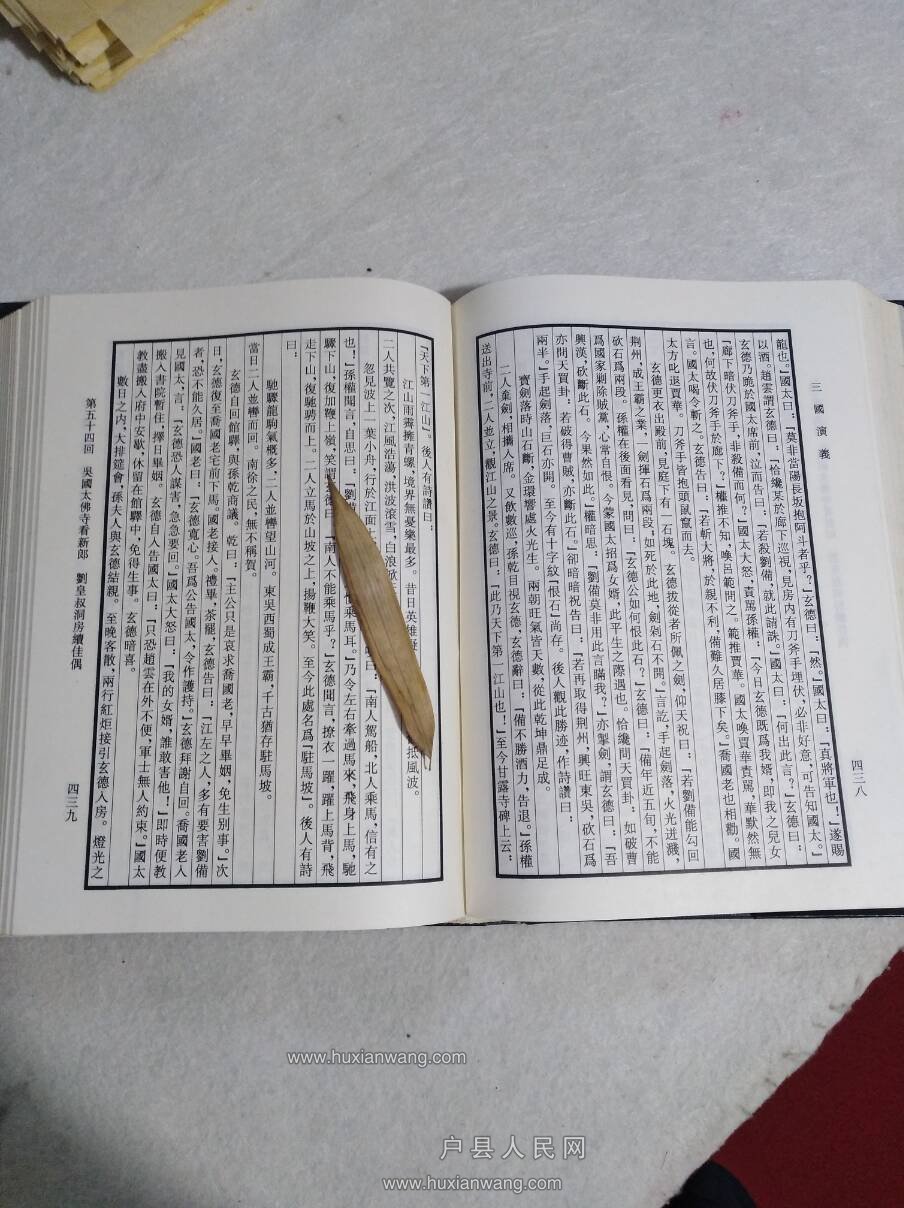 三國演義
四三八
龍也。」國太曰:「莫非當陽長坂抱阿斗者乎?」玄德曰:「然。」國太曰:「真將軍也!」遂賜
以酒。趙雲謂玄德曰:「恰纔某於廊下巡視,見房內有刀斧手埋伏,必非好意,可告知國太。」
玄德乃跪於國太席前,泣而告曰:「若殺劉備,就此請誅。」國太曰:「何出此言?」玄德曰:
「廊下暗伏刀斧手,非殺備而何?」國太大怒,責罵孫權:「今日玄德既為我婿,即我之兒女
也,何故伏刀斧手於廊下?」權推不知,喚呂範問之。範推賈華。國太喚賈華責罵,華默然無
言。國太喝令斬之。玄德告曰:「若斬大將,於親不利,備難久居膝下矣。」喬國老也相勸。國
太方叱退賈華。刀斧手皆抱頭鼠竄而去。
玄德更衣出殿前,見庭下有一石塊。玄德拔從者所佩之劍,仰天祝曰:「若劉備能勾回
荊州,成王霸之業,一劍揮石為兩段。如死於此地,劍剁石不開。」言訖,手起劍落,火光迸濺,
砍石為兩段。孫權在後面看見,問曰:「玄德公如何恨此石?」玄德曰:「備年近五旬,不能
為國家剿除賊黨,心常自恨。今蒙國太招為女婿,此平生之際遇也。恰纔問天買卦:如破曹
興漢,砍斷此石。今果然如此。」權暗思:「劉備莫非用此言瞞我?」亦掣劍,謂玄德曰:「吾
亦問天買卦:若破得曹賊,亦斷此石。」卻暗暗祝告曰:「若再取得荊州,興旺東吳,砍石為
兩半。」手起劍落,巨石亦開。至今有十字紋「恨石」尚存。後人觀此勝迹,作詩讚曰:
寶劍落時山石斷,金環響處火光生。兩朝旺氣皆天數,從此乾坤鼎足成。
二人棄劍,相攜入席。又飲數巡,孫乾目視玄德,玄德辭曰:「備不勝酒力,告退。」孫權
送出寺前,二人並立,觀江山之景。玄德曰:「此乃天下第一江山也!」至今甘露寺碑上云:
「天下第一江山」。後人有詩讚曰:
江山雨霽擁青螺,境界無憂樂最多。昔日英雄凝 抵風波。
二人共覽之次,江風浩蕩,洪波滾雪,白浪掀
忽見波上一葉小舟,行於江面上 曰:「南人駕船,北人乘馬,信有之
也!」孫權聞言,自思曰:「劉 慣乘馬耳。」乃令左右牽過馬來,飛身上馬,馳
驟下山,復加鞭上嶺,笑謂 德曰:「南人不能乘馬乎?」玄德聞言,撩衣一躍,躍上馬背,飛
走下山,復馳騁而上。二人立馬於山坡之上,揚鞭大笑。至今此處名為「駐馬坡」。後人有詩
曰:
馳驟龍駒氣概多,二人並轡望山河。東吳西蜀成王霸,千古猶存駐馬坡。
當日二人並轡而回。南徐之民,無不稱賀。
玄德自回館驛,與孫乾商議。乾曰:「主公只是哀求喬國老,早早畢姻,免生別事。」次
日,玄德復至喬國老宅前下馬。國老接入。禮畢,茶罷,玄德告曰:「江左之人,多有要害劉備
者,恐不能久居。」國老曰:「玄德寬心。吾為公告國太,令作護持。」玄德拜謝自回。喬國老入
見國太,言:「玄德恐人謀害,急急要回。」國太大怒曰:「我的女婿,誰敢害他!」即時便教
搬入書院暫住,擇日畢姻。玄德自入告國太曰:「只恐趙雲在外不便,軍士無人約束。」國太
教盡搬入府中安歇,休留在館驛中,免得生事。玄德暗喜。
數日之內,大排筵會,孫夫人與玄德結親。至晚客散,兩行紅炬接引玄德入房。燈光之
第五十四回 吳國太佛寺看新郎 劉皇叔洞房續佳偶
四三九
www.huxianwang.com
户县人民网
www.huxianwang.com